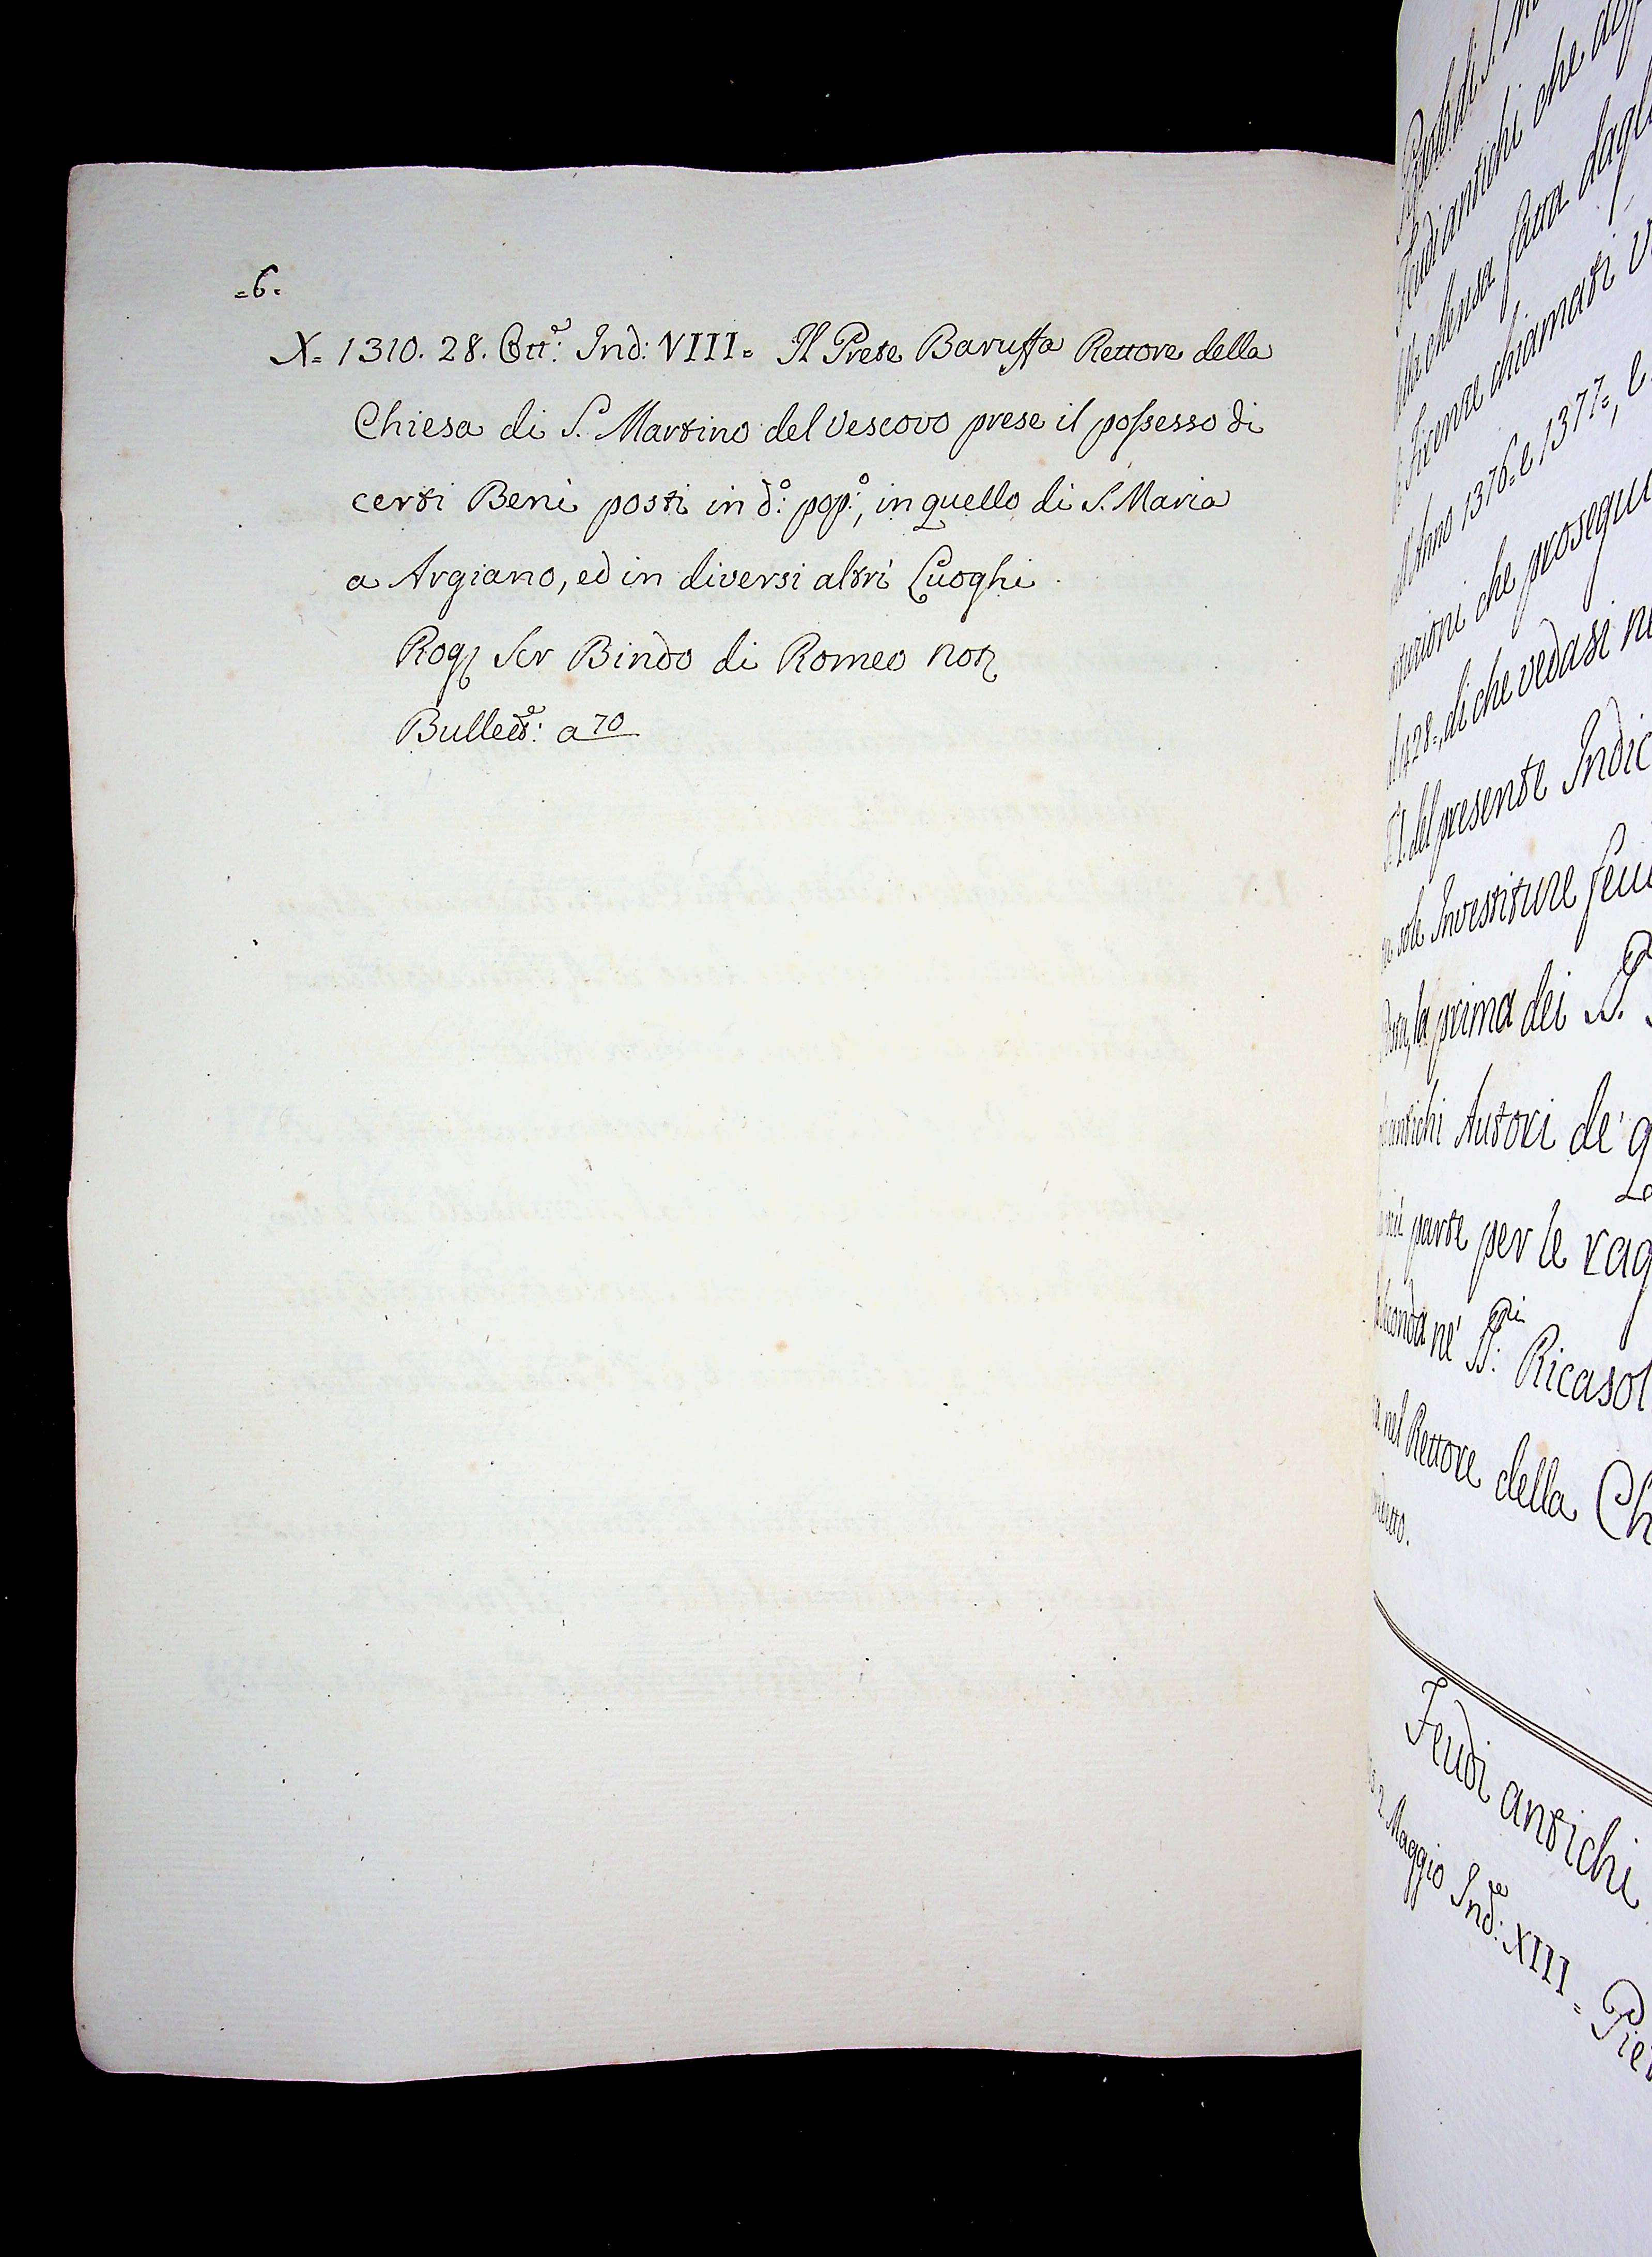 =6=
X= 1310. 28. Ott.e Ind: VIII= Il Prete Baruffa Rettore della
Chiesa di S. Martino del Vescovo prese il possesso di
certi Beni posti in d.o: pop.o:, in quello di S. Maria
a Argiano, ed in diversi altri Luoghi
Rog. Ser Bindo di Romeo not.
Bullett.e: a 70
antichi che
fatta dagl
Firenze chiamati
Anno 1376= e 1377=, e
che prosegu
1428=, di che vedasi n
del presente Indic
sole Investiture feu
la prima dei SS.
antichi Autori de' q
parte per le rag
ne' SS.ri: Ricasol
nel Rettore della Ch
Feudi antichi
2. Maggio Ind.e: XIII= Pie